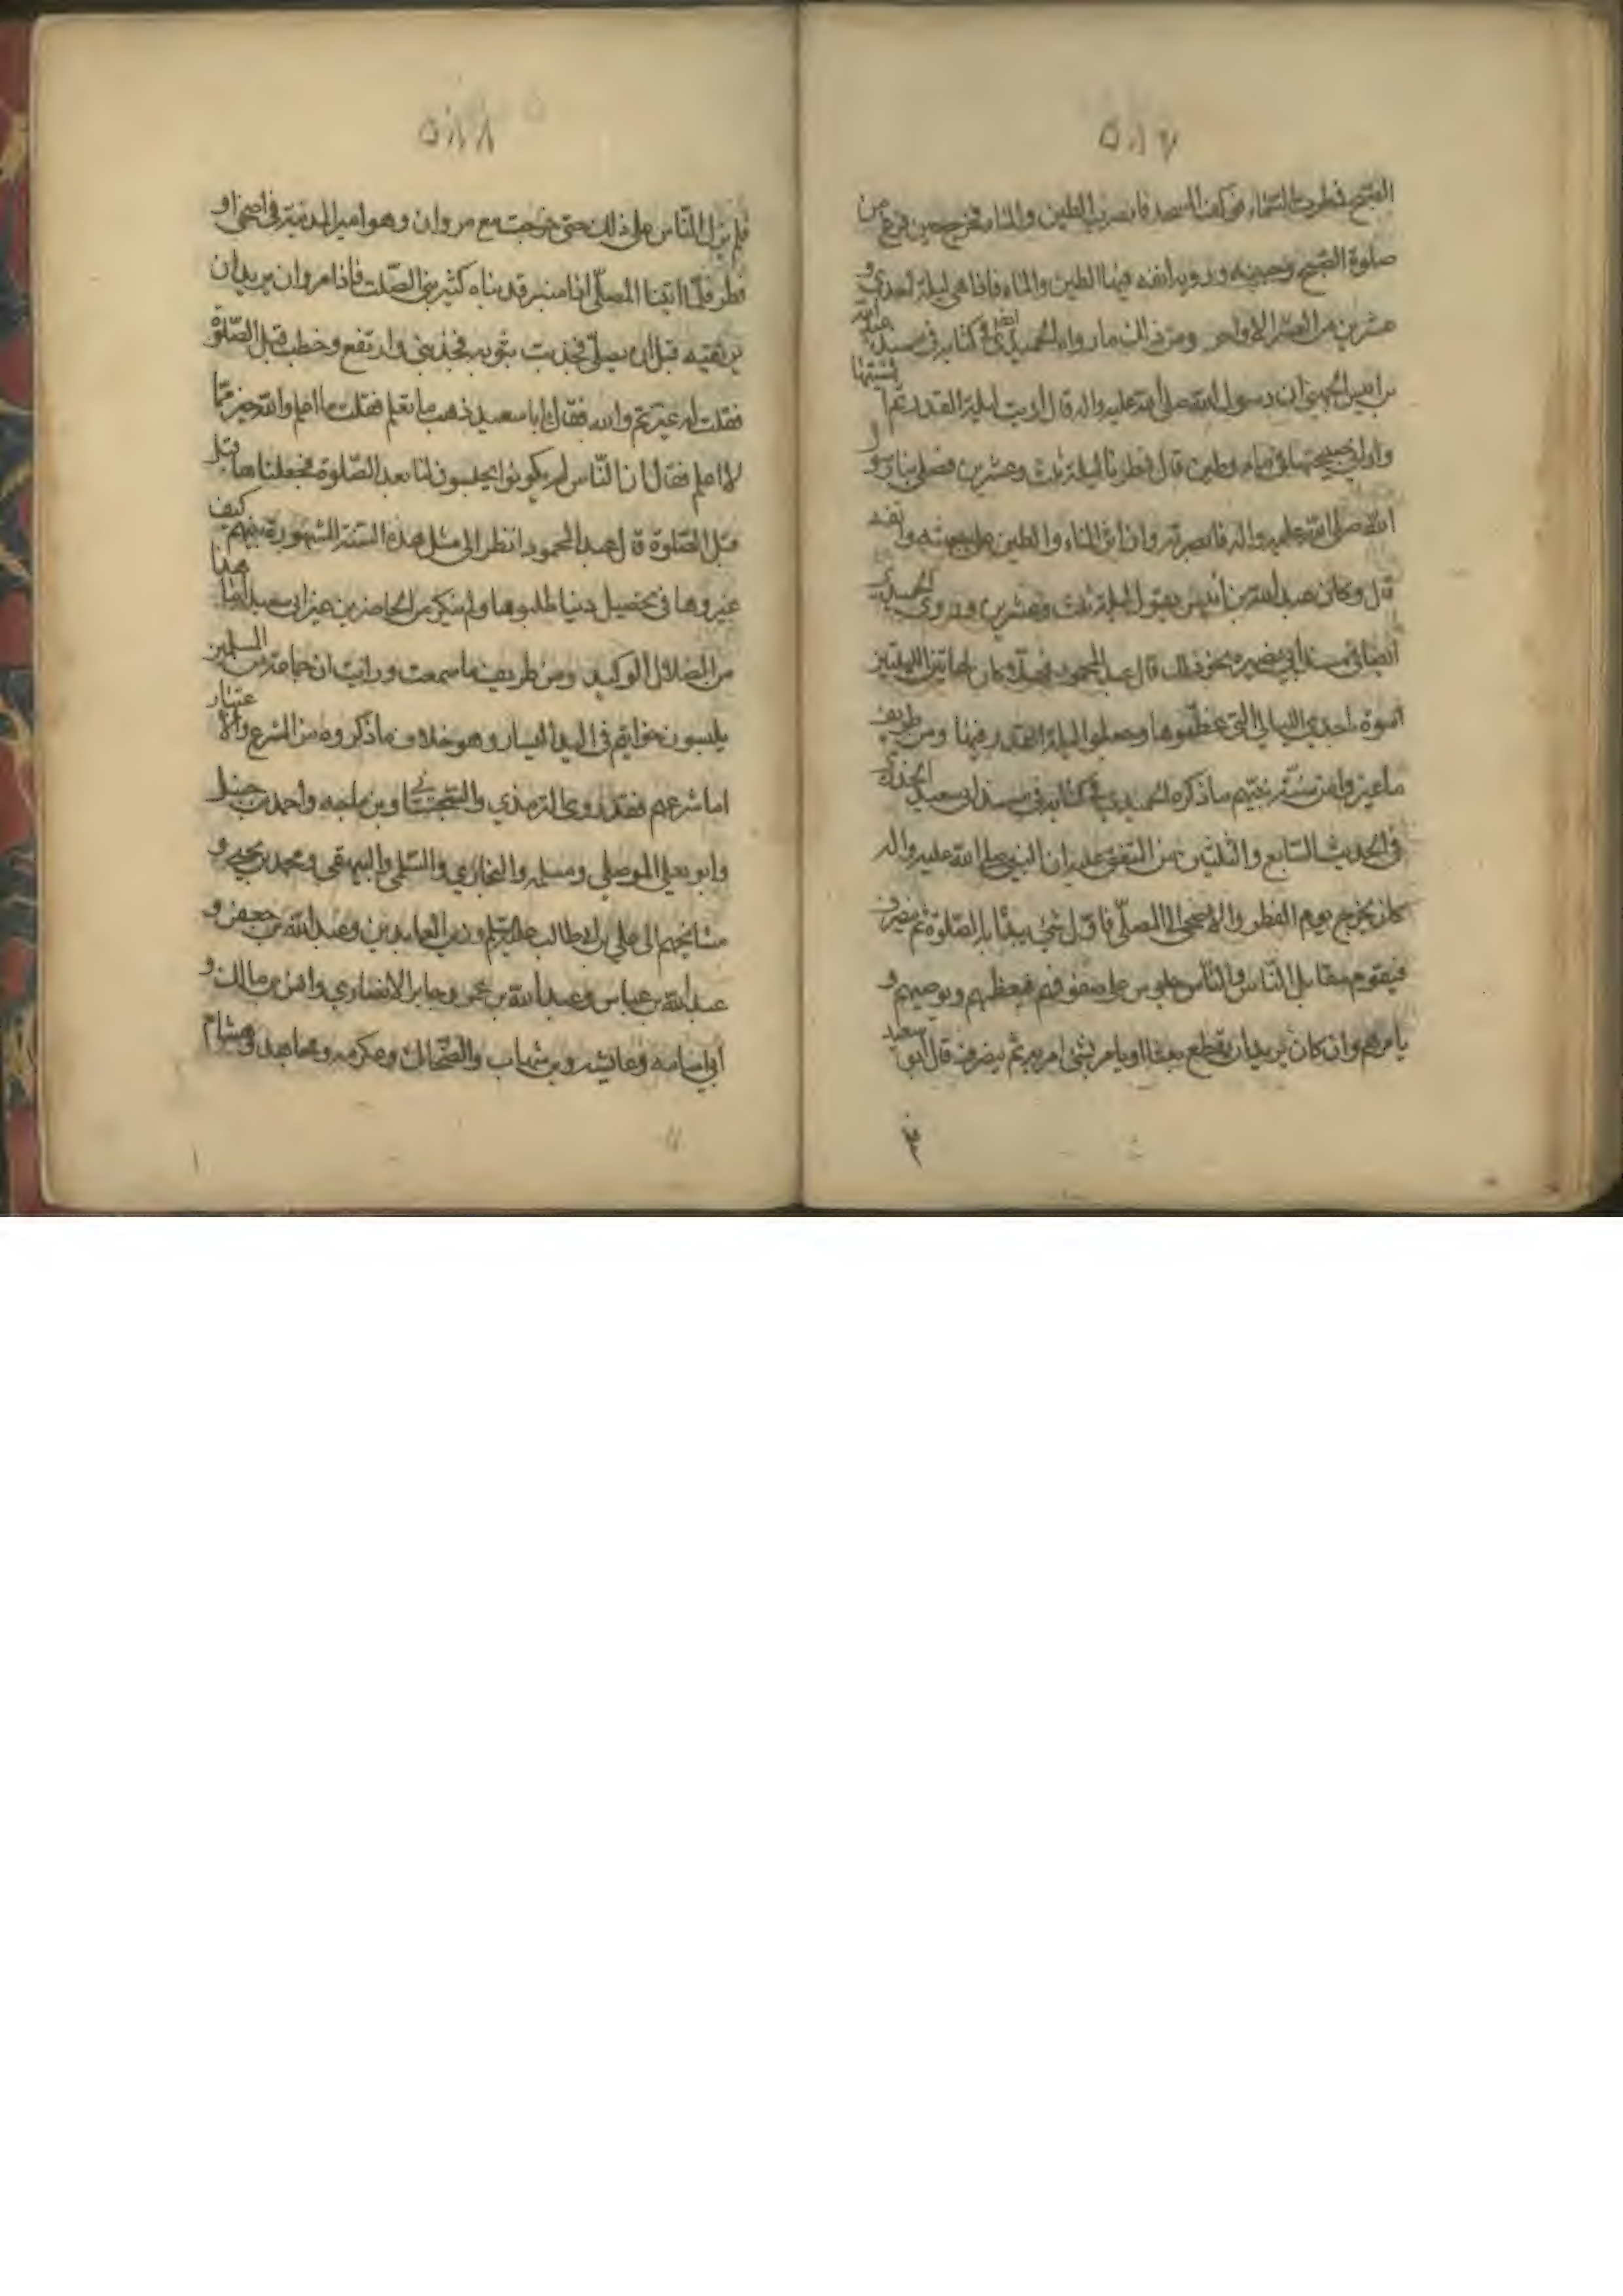 ٥١٧
الصبح فمطرت السماء فوكف المسجد فابصرت الطين والماء فخرج حين فرغ من
صلوة الصبح وجبينه وروثة انفه فيها الطين والماء فاذا هي ليلة احدى و
عشرين من العشر الاواخر ومن ذلك ما رواه الحميدي ايضا في كتابه في مسند عبد الله
بن انيس الجهني ان رسول الله صلى الله عليه واله قال اريت ليلة القدر ثم انسيتها
واراني صبيحتها في ماء وطين قال فمطرنا ليلة ثلث وعشرين فصلى بنا رسو ل
الله صلى الله عليه واله فانصرف وان اثر الماء والطين على جبهته وانفه
قال وكان عبد الله بن انيس يقول ليلة ثلث وعشرين وروى الحميدي
ايضا في مسند ابي بصره نحو ذلك قال عبد المحمود فهلا كان لهاتين الليلتين
اسوة باحدى الليالي التي عظموها وجعلوا ليلة القدر فيها ومن طريف
ما غيروا من سنة نبيهم ما ذكره الحميدي في كتابه في مسند ابي سعيد الخدري
في الحديث السابع والثلثين من المتفق عليه ان النبي صلى الله عليه واله
كان يخرج يوم الفطر والاضحى الى المصلى فاول شئ يبدأ به الصلوة ثم ينصرف
فيقوم مقابل الناس والناس جلوس على صفوفهم فيعظهم ويوصيهم و
يامرهم وان كان يريد ان يقطع بعثا او يامر بشئ امر به ثم ينصرف قال ابو سعيد
٥١٨
فلم يزل الناس على ذلك حتى خرجت مع مروان وهو امير المدينة في اضحى او
فطر فلما اتينا المصلى اذا منبر قد بناه كثير بن الصلت فاذا مروان يريد ان
يرتقيه قبل ان يصلي فجذبت بثوبه فجذبني وارتفع وخطب قبل الصلوة
فقلت له غيرتم والله فقال ابا سعيد ذهب ما تعلم فقلت ما اعلم والله خير مما
لا اعلم فقال ان الناس لم يكونوا يجلسون لنا بعد الصلوة فجعلناها قبل
قبل الصلوة قال عبد المحمود انظر الى مثل هذه السنة المشهورة بينهم كيف
غيروها في تحصيل دنيا طلبوها ولم ينكر من الحاضرين غير ابي سعيد هذا
من الضلال الوكيد ومن طريف ما سمعت ورايت ان جماعة من المسلمين
يلبسون خواتيم في اليد اليسار وهو خلاف ما ذكروه من الشرع والاعتبار
اما شرعهم فقد روى الترمذي والسجستاني وبن ماجه واحمد بن حنبل
وابو يعلي الموصلي ومسلم والبخاري والسلمي والبيهقي ومحمد بن يحيى و
مشايخهم الى علي بن ابي طالب عليه السلم وزين العابدين وعبد الله بن جعفر و
عبد الله بن عباس وعبد الله بن عمر وجابر الانصاري وانس بن مالك و
ابي امامه وعايشه وبن شهاب والضحاك وعكرمه ومجاهد وهشام